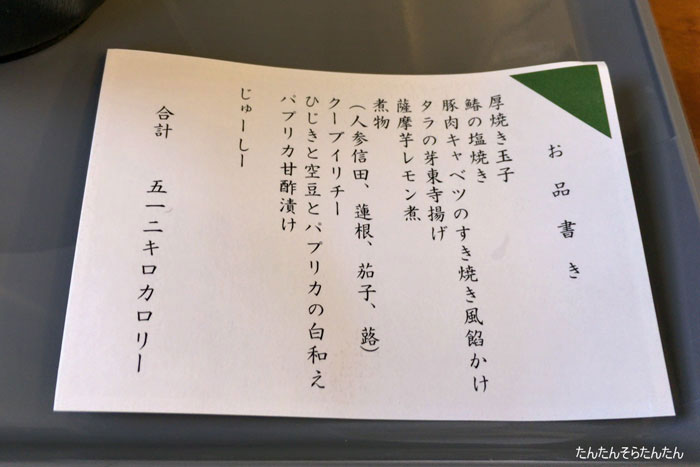 お品書き
厚焼き玉子
鰆の塩焼き
豚肉キャベツのすき焼き風餡かけ
タラの芽東寺揚げ
薩摩芋レモン煮
煮物
（人参信田、蓮根、茄子、蕗）
クーブイリチー
ひじきと空豆とパプリカの白和え
パプリカ甘酢漬け
じゅーしー
合計　五一二キロカロリー
たんたんそらたんたん